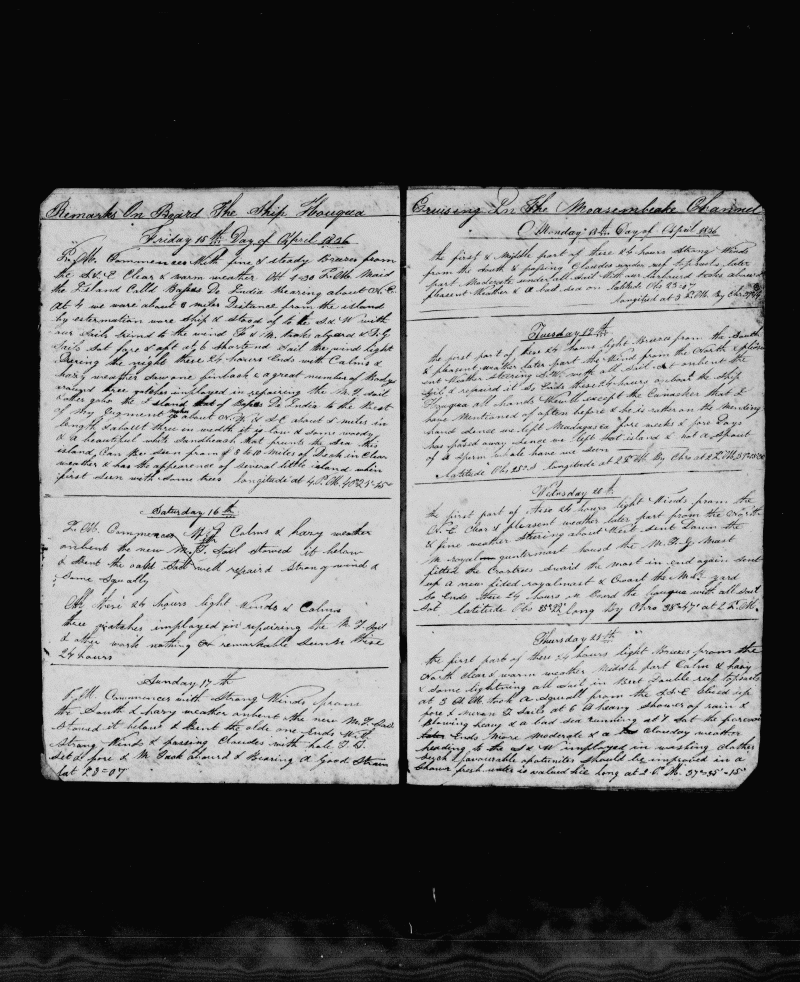 Remarks On Board The Ship Houqua
Friday 15th Day of April 1836
P.M. Commences With fine & steady Breeses from
the S.& E Clear & warm weather At 4-30 P.M. Maid
the Island Calld Bases De India Bearing about N.E.
at 4 we were about 8 miles Distance from the island
by estermation wore Ship & stood of to the S.& W with
our Sails trimd to the wind
Ship Set fore & aft at 6 shortend Sail the wind light
During the night these 24 hours Ends with Calms &
hazy weather saw one finback & a great number of
around three watches imployed in repairing the M.T. sail
the Island of Bases De India to the Best
of My Jugment about N.W. & S.E. about 8 miles in
length & about three in width it is low & some woody
& a beautiful white sandbeach that fronts the Sea this
island Can Be seen from 8 to 10 miles of Deck in Clear
weather & has the appearence of several little island when
first seen with some trees longitude at 4 P.M. 40=25=45=
Saturday 16th
P.M. Commences With Calms & hazy weather
unbent the new M.T. Sail stowed it below
& Bent the old Sail well repaird Strong wind &
Some Squally
All these 24 hours light Winds & Calms
three watches imployed in repairing the M.T. Sail
& other work nothing of remarkable seen these
24 hours
Sunday 17th
P.M. Commences with Strong Winds from
the South & hazy weather unbent the new M.T. Sail
stowed it below & Bent the old one Ends With
Strong Winds & passing Cloudes with hole T.S.
Set & fore & M. Tack aboard & Bearing A Good Strain
lat 23=07
Cruising In The Moasembeake Channel
Monday 18th Day of April 1836
the first & Middle part of these 24 hours Strong Winds
from the South & passing Cloudes under reef topsails later
part Moderate under full sail With our Larbourd tacks aboard
pleasent Weather & a bad sea on latitude Obs 23=17
longitud at 3 P.M. By Chro
Tuesday 19th
the first part of these 24 hours light Breeses from the South
& pleasent weather later part the Wind from the North & pleas
ent Weather stering S.W. with all Sail Set unbent the
& repaird it So Ends these 24 hours on board the Ship
Houqua all hands Well except the Canacker that I
have Mentioned of often before & he is rather on the Mending
hand sence we left Madagasca fore weeks & fore Days
has past away sence we left that island & not a Spout
of a Sperm whale have we seen
latitude Obs 25=.S longitude at 2 P.M. By Chro
Wednsday 20th
the first part of these 24 hours light Winds from the
N.E. Clear & pleasent weather later part the wind from the
& fine weather stering about West sent Down the
M royal housd the M.T.G. Mast
fitted the Crostrees Swaid the mast in end again sent
up a new fited royalmast & Croast the M.R. yard
So Ends these 24 hours on Board the houqua with all Sail
Set latitude Obs long By Chro 38=47= at 2 P.M.
Thursday 21th
the first part of these 24 hours light Breeses from the
North clear & warm weather Middle part Calm & hazy
& some lightning all sail in But Double reef topsails
at 3 A.M. took a Squall from the S.S.E. Clued up
fore & Main T. Sails at 6 A heavy Shower of rain &
Blowing heavy & a bad sea running at 7 Set the
Ends More Moderate & a Cloudey weather
heading to the S & W imployed in washing clothes
such favourable opotunites should be improved in a
Chower fresh water is valued hie long at 2 P.M. 37=35=15=